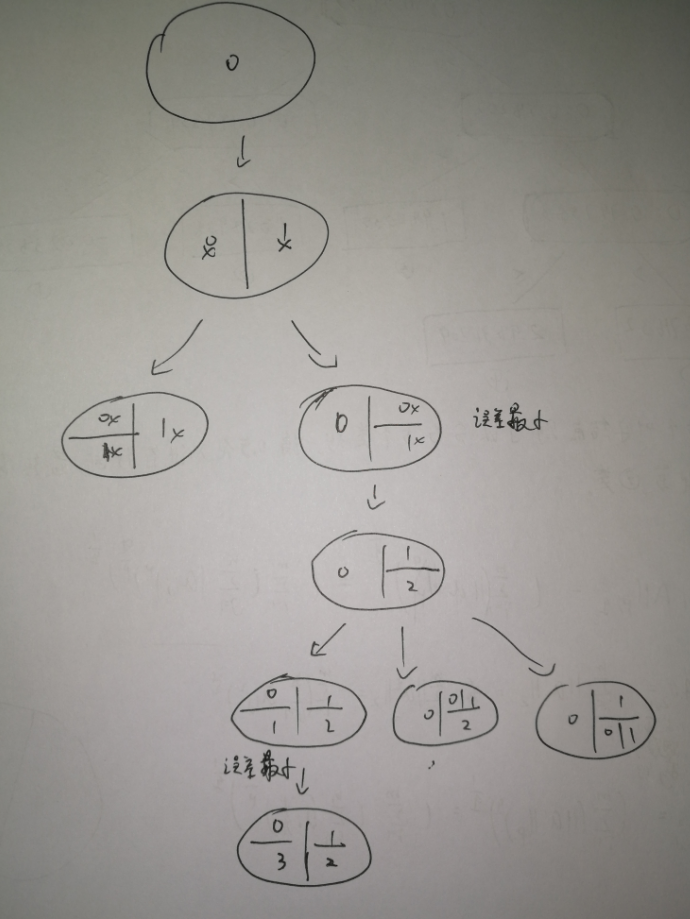 0
0x 1x
0x 1x
1x
0 0x
1x
误差最小
0 1
2
0 1
1 2
0 0 1
2
0 1
0 1
误差最小
0 1
3 2